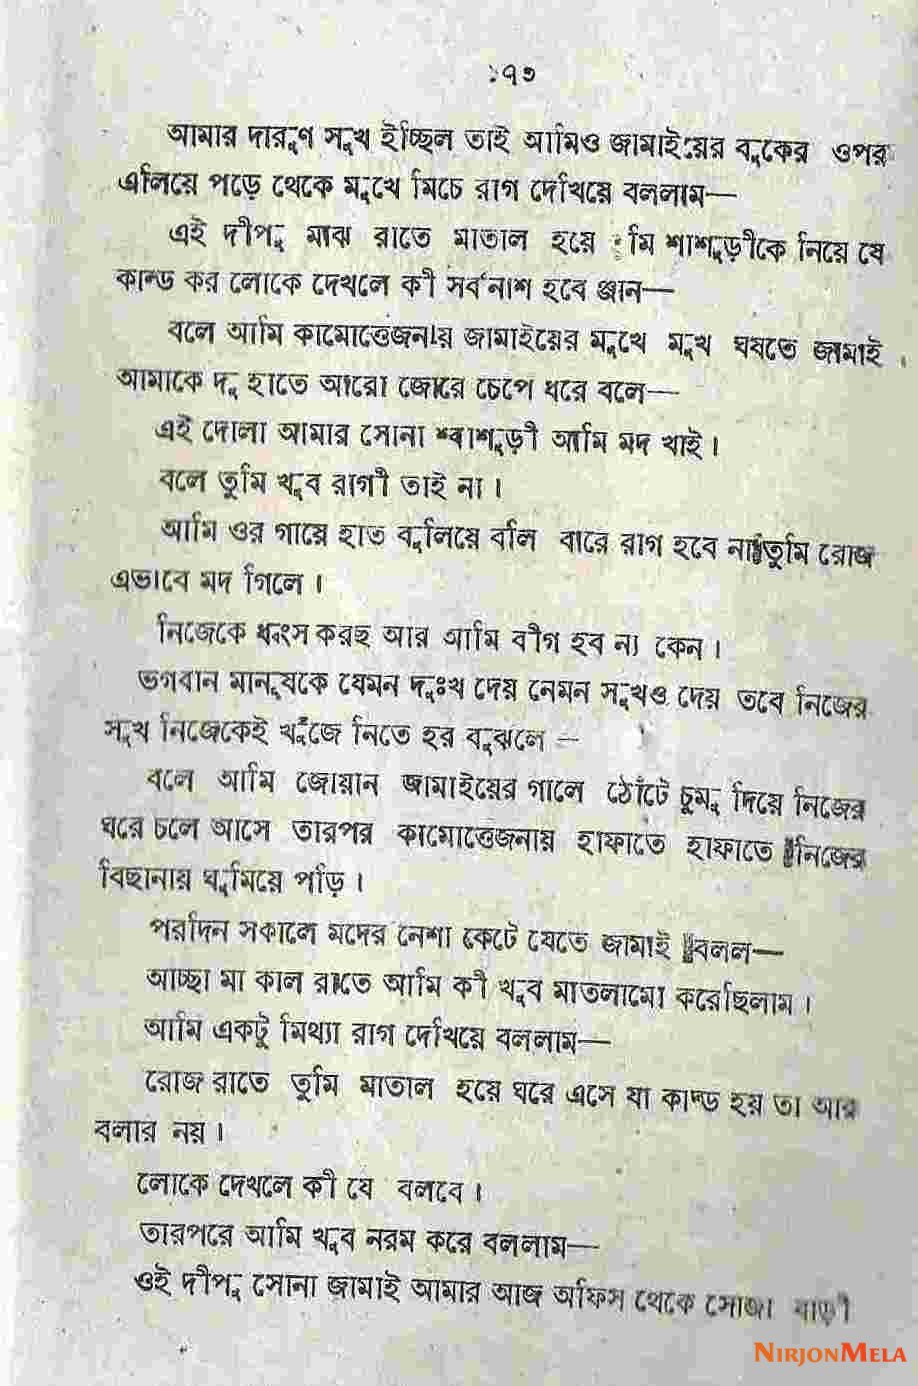 ১৭৩
আমার দারুণ সুখ হচ্ছিল তাই আমিও জামাইয়ের বুকের ওপর
এলিয়ে পড়ে থেকে মুখে মিচে রাগ দেখিয়ে বললাম—
এই দীপু মাঝ রাতে মাতাল হয়ে তুমি শাশুড়ীকে নিয়ে যে
কান্ড কর লোকে দেখলে কী সর্বনাশ হবে জ্ঞান—
বলে আমি কামোত্তেজনায় জামাইয়ের মুখে মুখ ঘষতে জামাই
আমাকে দু হাতে আরো জোরে চেপে ধরে বলে—
এই দোলা আমার সোনা শ্বাশুড়ী আমি মদ খাই।
বলে তুমি খুব রাগী তাই না।
আমি ওর গায়ে হাত বুলিয়ে বলি বারে রাগ হবে না তুমি রোজ
এভাবে মদ গিলে।
নিজেকে ধ্বংস করছ আর আমি বীগ হব না কেন।
ভগবান মানুষকে যেমন দুঃখ দেয় নেমন সুখও দেয় তবে নিজের
সুখ নিজেকেই খুঁজে নিতে হর বুঝলে –
বলে আমি জোয়ান জামাইয়ের গালে ঠোঁটে চুমু দিয়ে নিজের
ঘরে চলে আসে তারপর কামোত্তেজনায় হাফাতে হাফাতে নিজের
বিছানায় ঘুমিয়ে পড়ি।
পরদিন সকালে মদের নেশা কেটে যেতে জামাই বলল—
আচ্ছা মা কাল রাতে আমি কী খুব মাতলামো করেছিলাম।
আমি একটু মিথ্যা রাগ দেখিয়ে বললাম—
রোজ রাতে তুমি মাতাল হয়ে ঘরে এসে যা কান্ড হয় তা আর
বলার নয়।
লোকে দেখলে কী যে বলবে।
তারপরে আমি খুব নরম করে বললাম—
ওই দীপু সোনা জামাই আমার আজ অফিস থেকে সোজা বাড়ী
NIRJONMELA